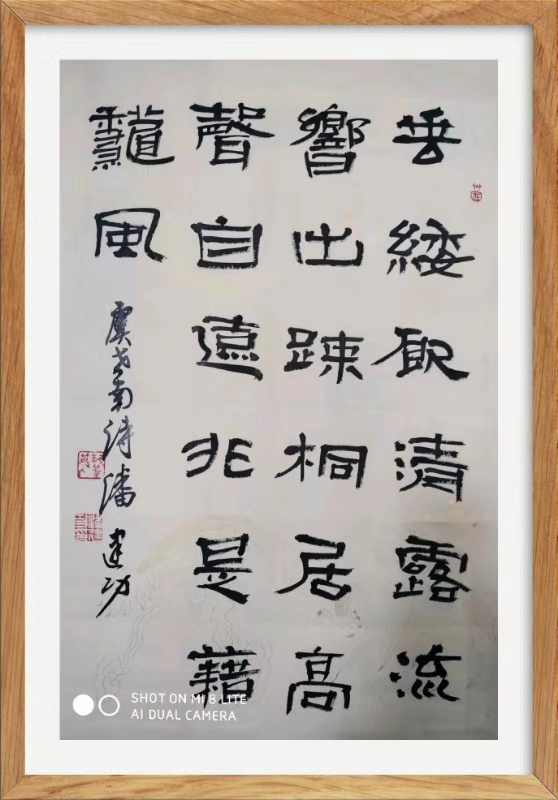 垂緌飲清露流
響出疎桐居高
聲自遠非是藉
龝風
虞世南詩潘建功
SHOT ON MI 8 LITE
AI DUAL CAMERA